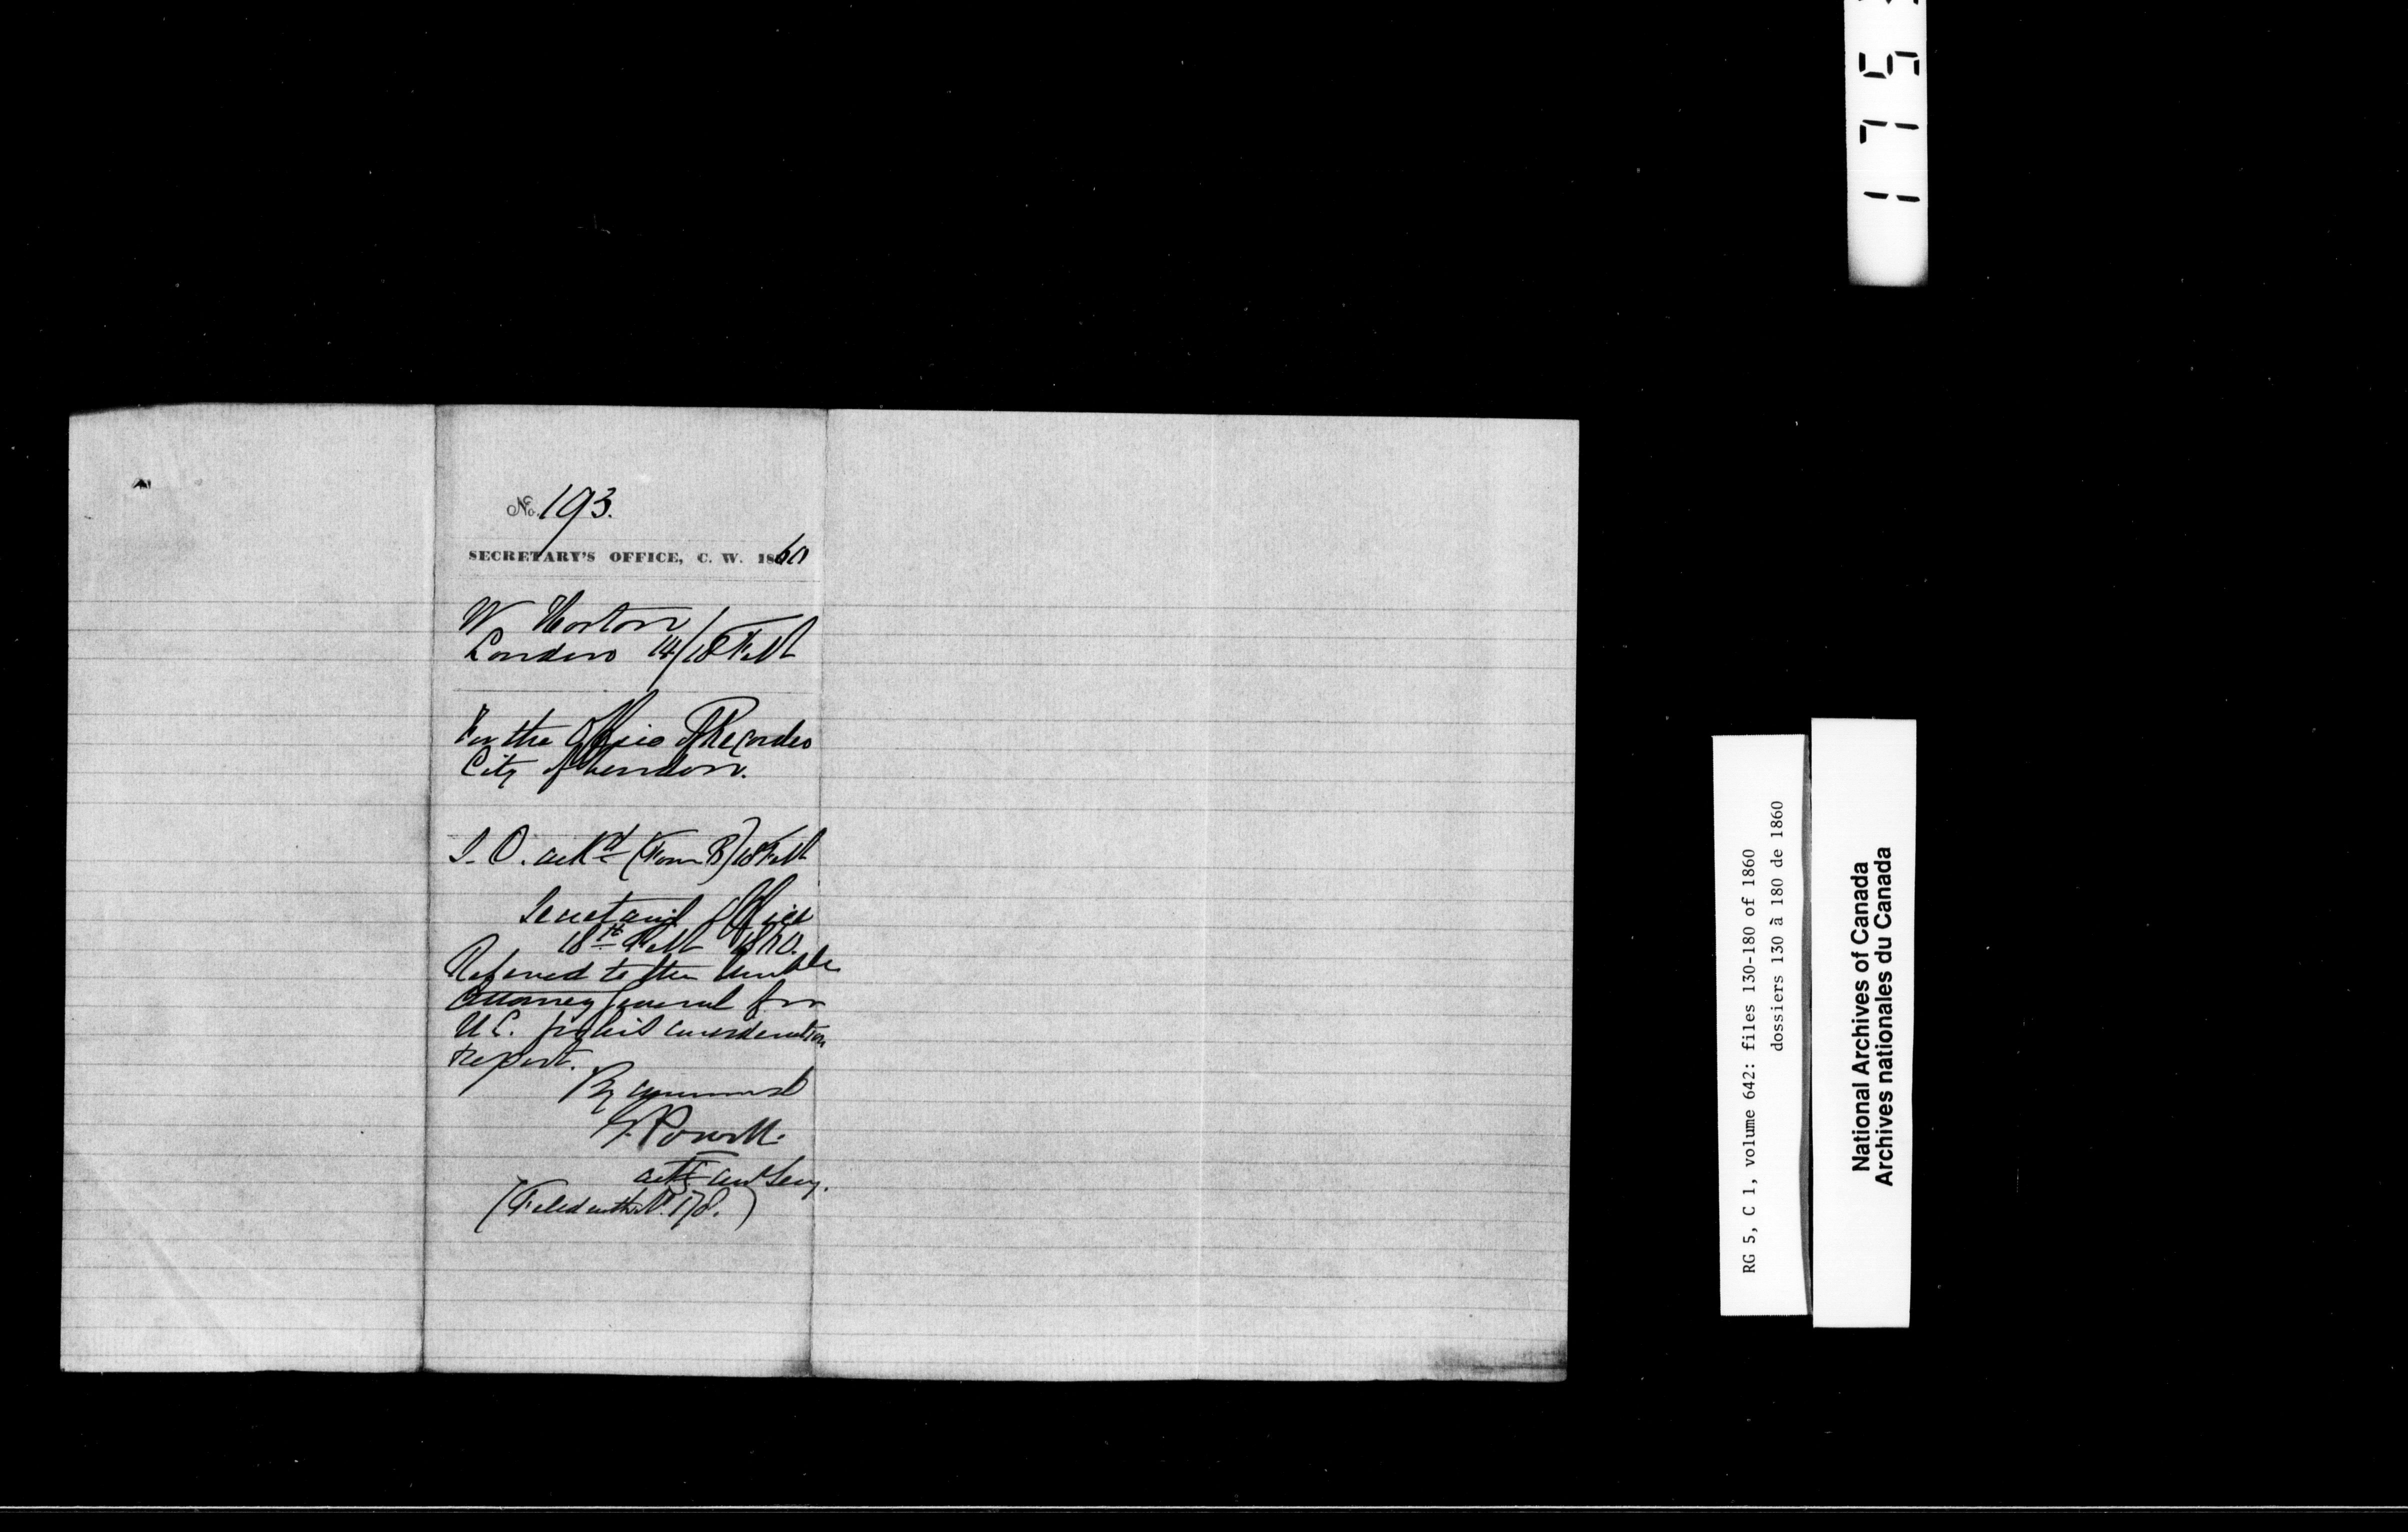 No. 193.
SECRETARY'S OFFICE, C. W. 1860
W Horton
London 14/18 Feb
For the Office of Recorder
City of London.
ackd (Form B) 18 Feb
Secretary's Office
18th Feb 1860.
Referred to the Honble
Attorney General for
U.C. for his consideration
& report.
By command
Powell.
actg asst Secy.
(Filed with No. 178.)
175
RG 5, C 1, volume 642: files 130-180 of 1860
dossiers 130 à 180 de 1860
National Archives of Canada
Archives nationales du Canada